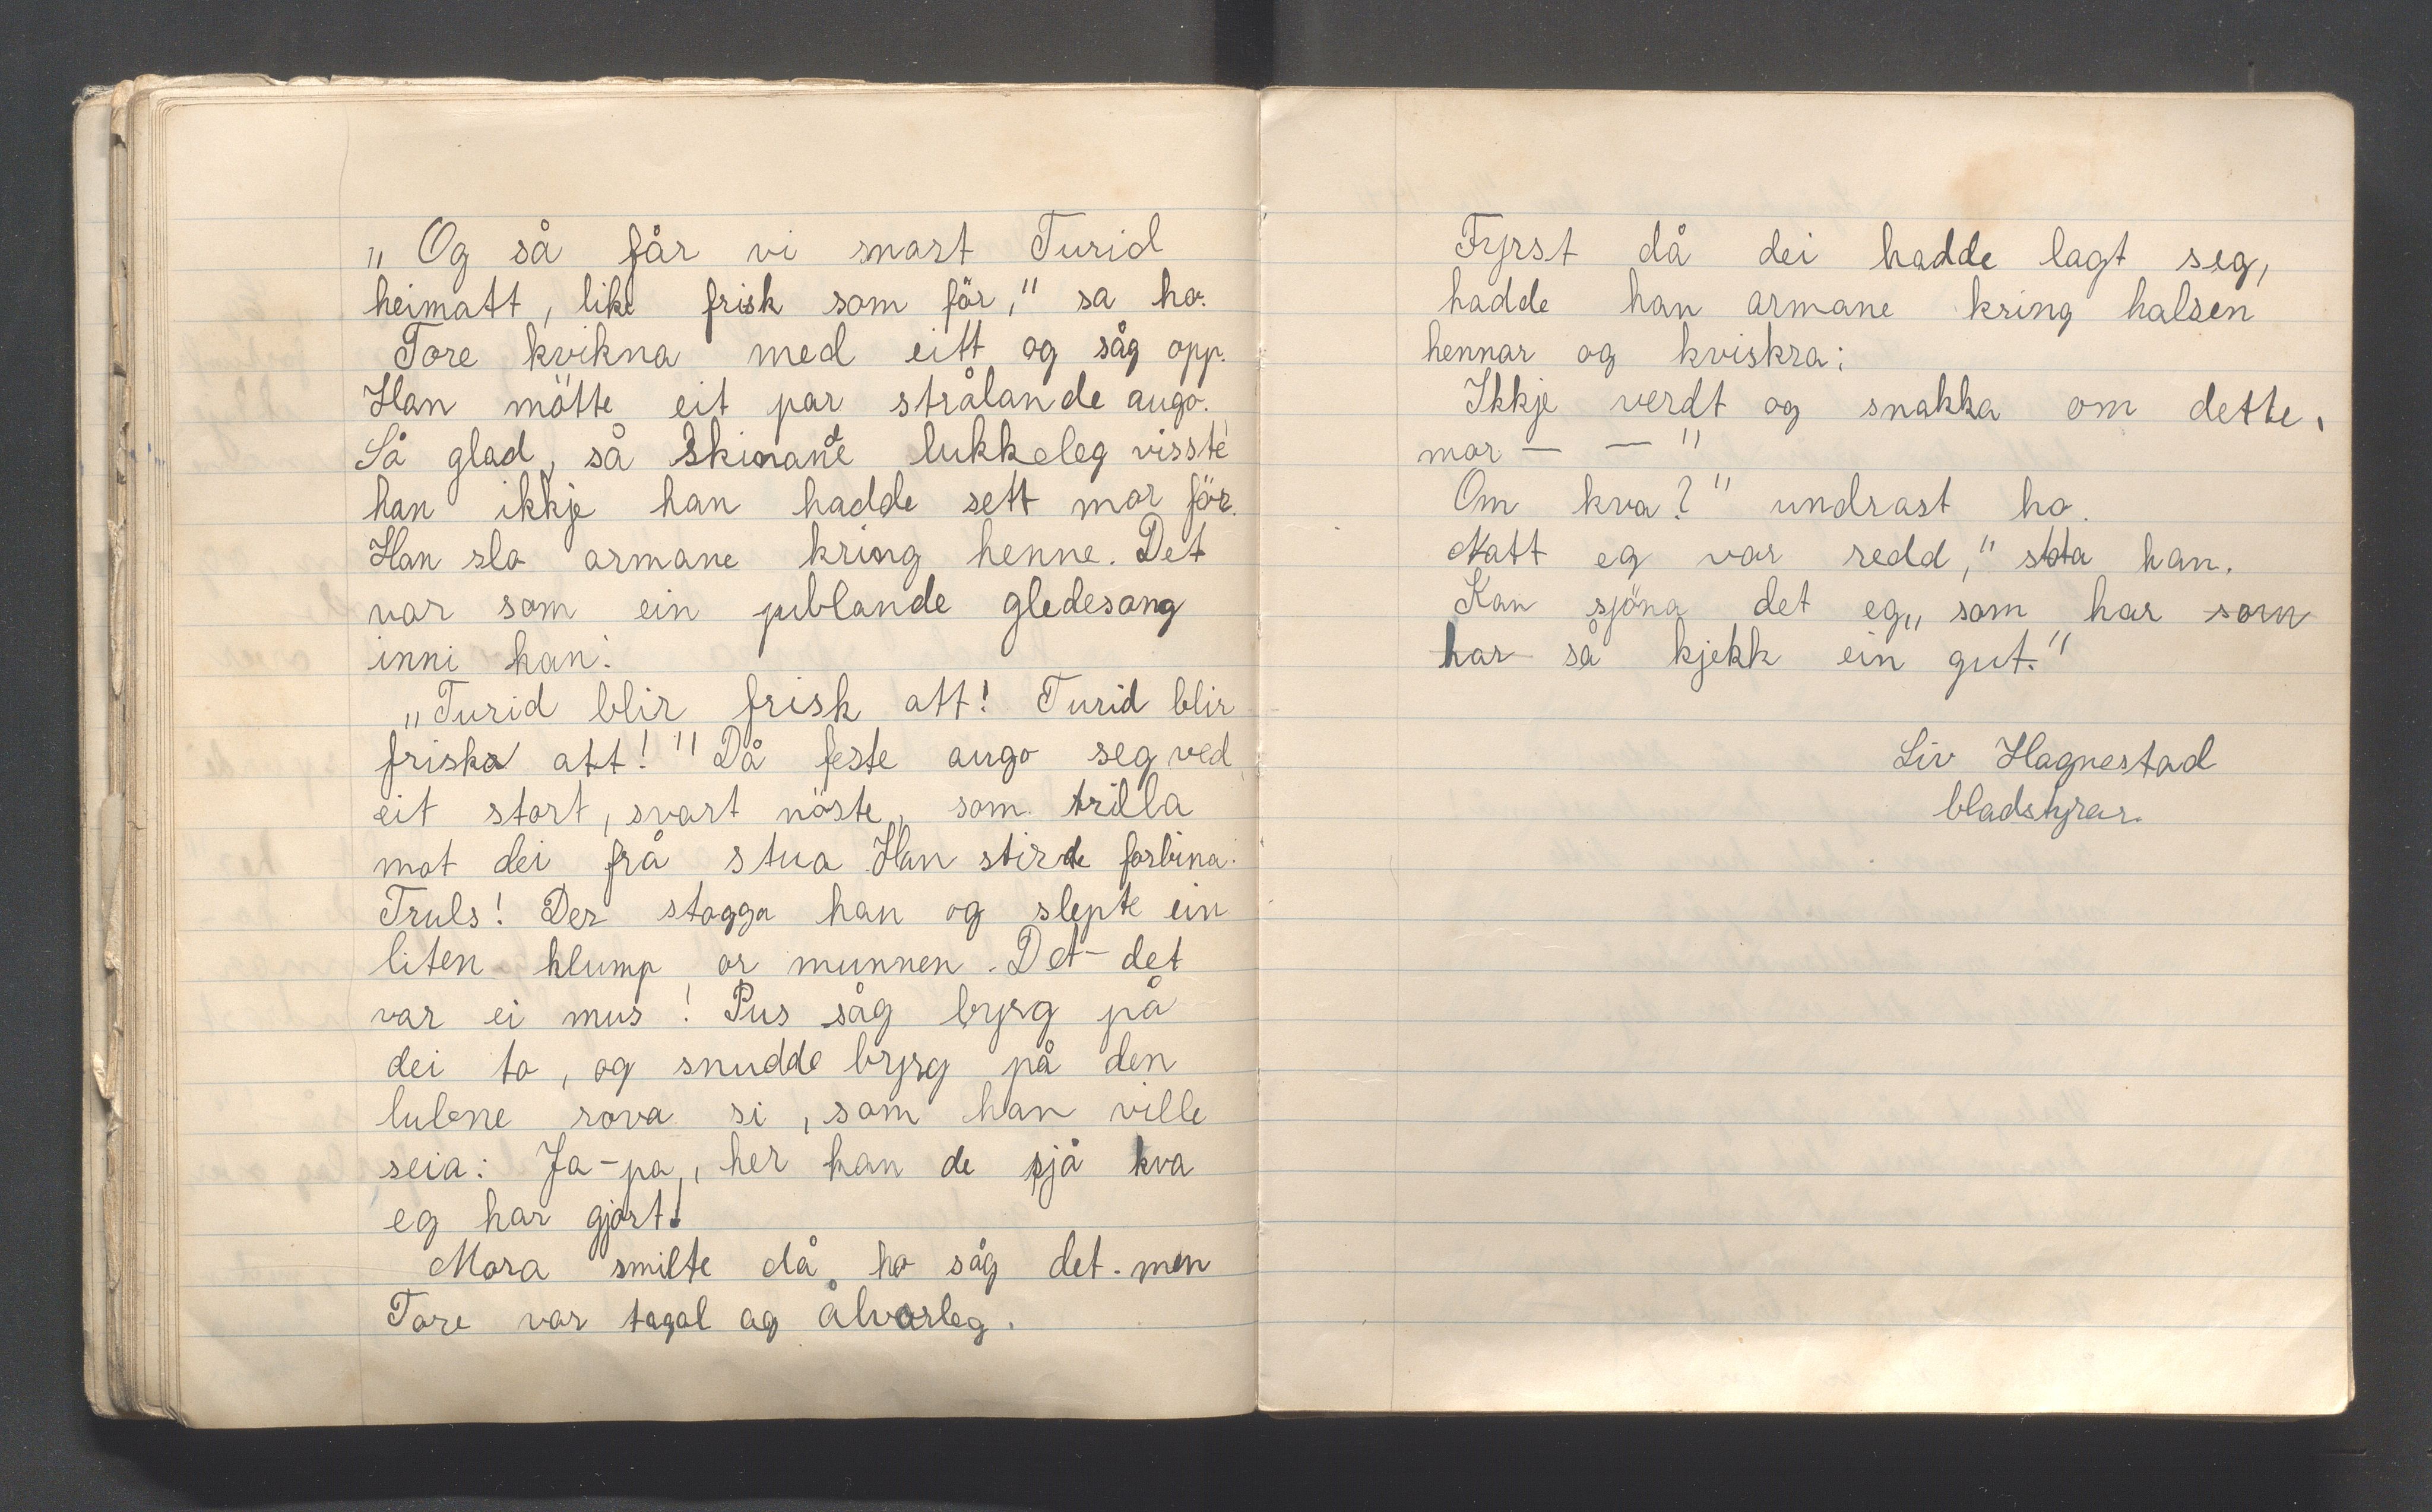 „Og så får vi snart Turid
heimatt, like frisk som för," sa ho.
Tore kvikna med eitt og såg opp.
Han mötte eit par strålande augo.
Så glad, så skinande lukkeleg visste
han ikkje han hadde sett mor för.
Han slo armane kring henne. Det
var som ein jublande gledesong
inni han:
„Turid blir frisk att! Turid blir
frisk att!" Då feste augo seg ved
eit stort, svart nöste, som trilla
mot dei frå stua Han stirde forbina.
Truls! Der stogga han og slepte ein
liten klump or munnen. Det- det
var ei mus! Pus såg byrg på
dei to, og snudde byrg på den
lubne rova si, som han ville
seia: Ja-pa, her kan de sjå kva
eg har gjort!
Mora smilte då ho såg det. men
Tore var tagal og ålvorleg.
Fyrst då dei hadde lagt seg,
hadde han armane kring halsen
hennar og kviskra:
Ikkje verdt og snakka om dette,
mor — — "
Om kva?" undrast ho.
Natt eg var redd," sa han.
Kan sjöna det eg„ som har som
har så kjekk ein gut."
Liv Hagnestad
bladstyrar.